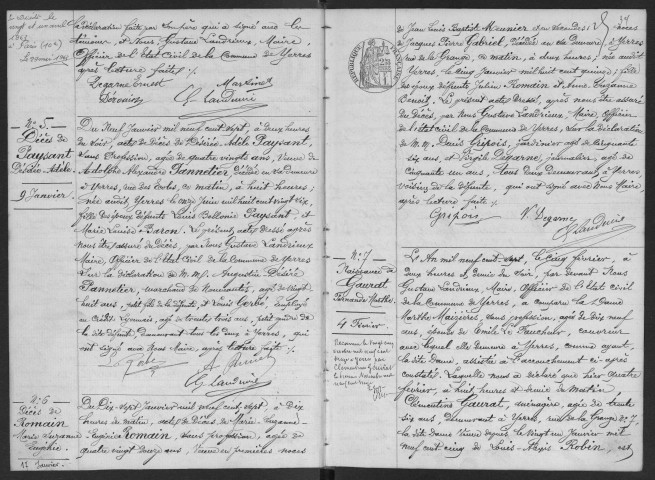 la déclaration faite par son père qui a signé avec les
témoins, et Nous Gustave Landrieux, Maire,
Officier de l'Etat Civil de la Commune de Yerres
après lecture faite
Degarne Ernest
Martinet
G. Landrieux
N° 5
Décès de
Paysant
Désirée Adèle
9 Janvier
Du Neuf Janvier mil neuf cent sept, à deux heures
du soir, acte de décès de Désirée Adèle Paysant,
sans profession, agée de quatre vingts ans, Veuve de
Adolphe Alexandre Pannetier, décédée en sa demeure
à Yerres, rue des Ecoles, ce matin, à huit heures ;
née audit Yerres le onze Juin mil huit cent vingt six,
fille des époux défunts Louis Bellonie Paysant et
Marie Louise Baron. Le présent acte dressé, après
nous être assuré du décès, par Nous Gustave Landrieux
Maire, Officier de l'Etat Civil de la Commune de Yerres
sur la déclaration de M.M. Augustin Désiré
Pannetier, marchand de Nouveautés, agé de vingt
huit ans, petit fils de la défunte, et Louis employé
au Crédit Lyonnais, agé de trente trois ans, petit gendre de
la dite défunte, demeurant tous les deux à Yerres, qui
ont signé avec Nous Maire, après lecture faite
G. Landrieux
N° 6
Décès de
Romain
Marie Suzanne
Eugénie
17 Janvier
Du Dix-sept Janvier mil neuf cent sept, à dix
heures du matin, acte de Décès de Marie Suzanne
Eugénie Romain, sans profession, agée de
quatre vingt douze ans, Veuve en premières noces
37
de Jean Louis Baptiste Meunier et en secondes noces
de Jacques Pierre Gabriel, décédée en sa demeure à Yerres
rue de la Grange, ce matin, à deux heures ; née audit
Yerres, le cinq Janvier mil huit cent quinze ; fille
des époux défunts Julien Romain et Anne Suzanne
Benoit. Le présent acte dressé, après nous être assuré
du décès, par Nous Gustave Landrieux, Maire, Officier
de l'Etat civil de la Commune de Yerres, sur la déclaration
de M.M. Denis Gripois, jardinier agé de cinquante
six ans, et Virgile Degarne, journalier, agé de
cinquante un ans, tous deux demeurant à Yerres,
voisins de la défunte, qui ont signé avec Nous Maire
après lecture faite
Gripois
V. Degarne
G. Landrieux
N° 7
Naissance de
Gaurat
Fernande Marthe
4 Février
L'An mil neuf cent sept, le cinq février, à
deux heures et demie du soir, par devant Nous
Gustave Landrieux, Maire, Officier de l'Etat civil
de la Commune de Yerres, a comparu la Dame
Marthe Maizières sans profession, agée de dix neuf
ans, épouse de Emile Le couvreur
avec lequel elle demeure à Yerres, comme ayant,
la dite Dame, assistée à l'accouchement ci-après
constaté. Laquelle nous a déclaré que hier quatre
février, à huit heures et demie du matin
Clémentine Gaurat, ménagère, agée de trente
six ans, demeurant à Yerres, rue de la Grange N° 7,
la dite Dame Veuve depuis le vingt un Janvier mil
neuf cent cinq de Louis Alexis Robin, est